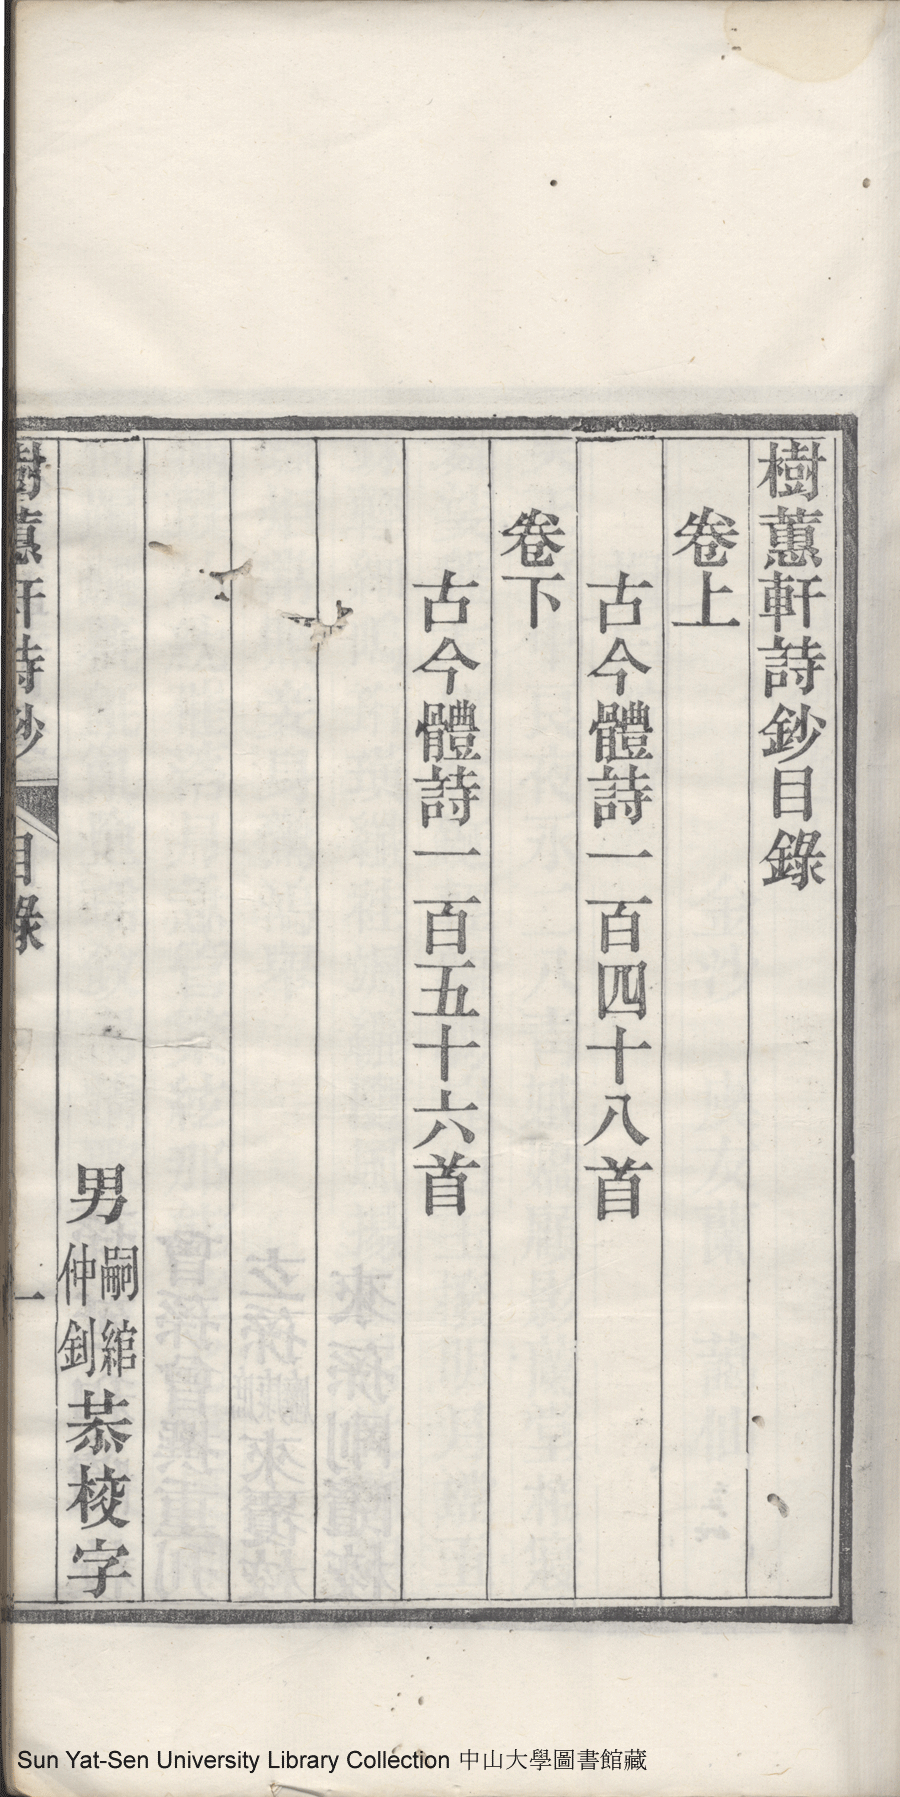 樹蕙軒詩鈔目錄
卷上
古今體詩一百四十八首
卷下
古今體詩一百五十六首
男嗣綰仲釗恭校字
樹蕙軒詩鈔 目錄 一
Sun Yat-Sen University Library Collection 中山大學圖書館藏